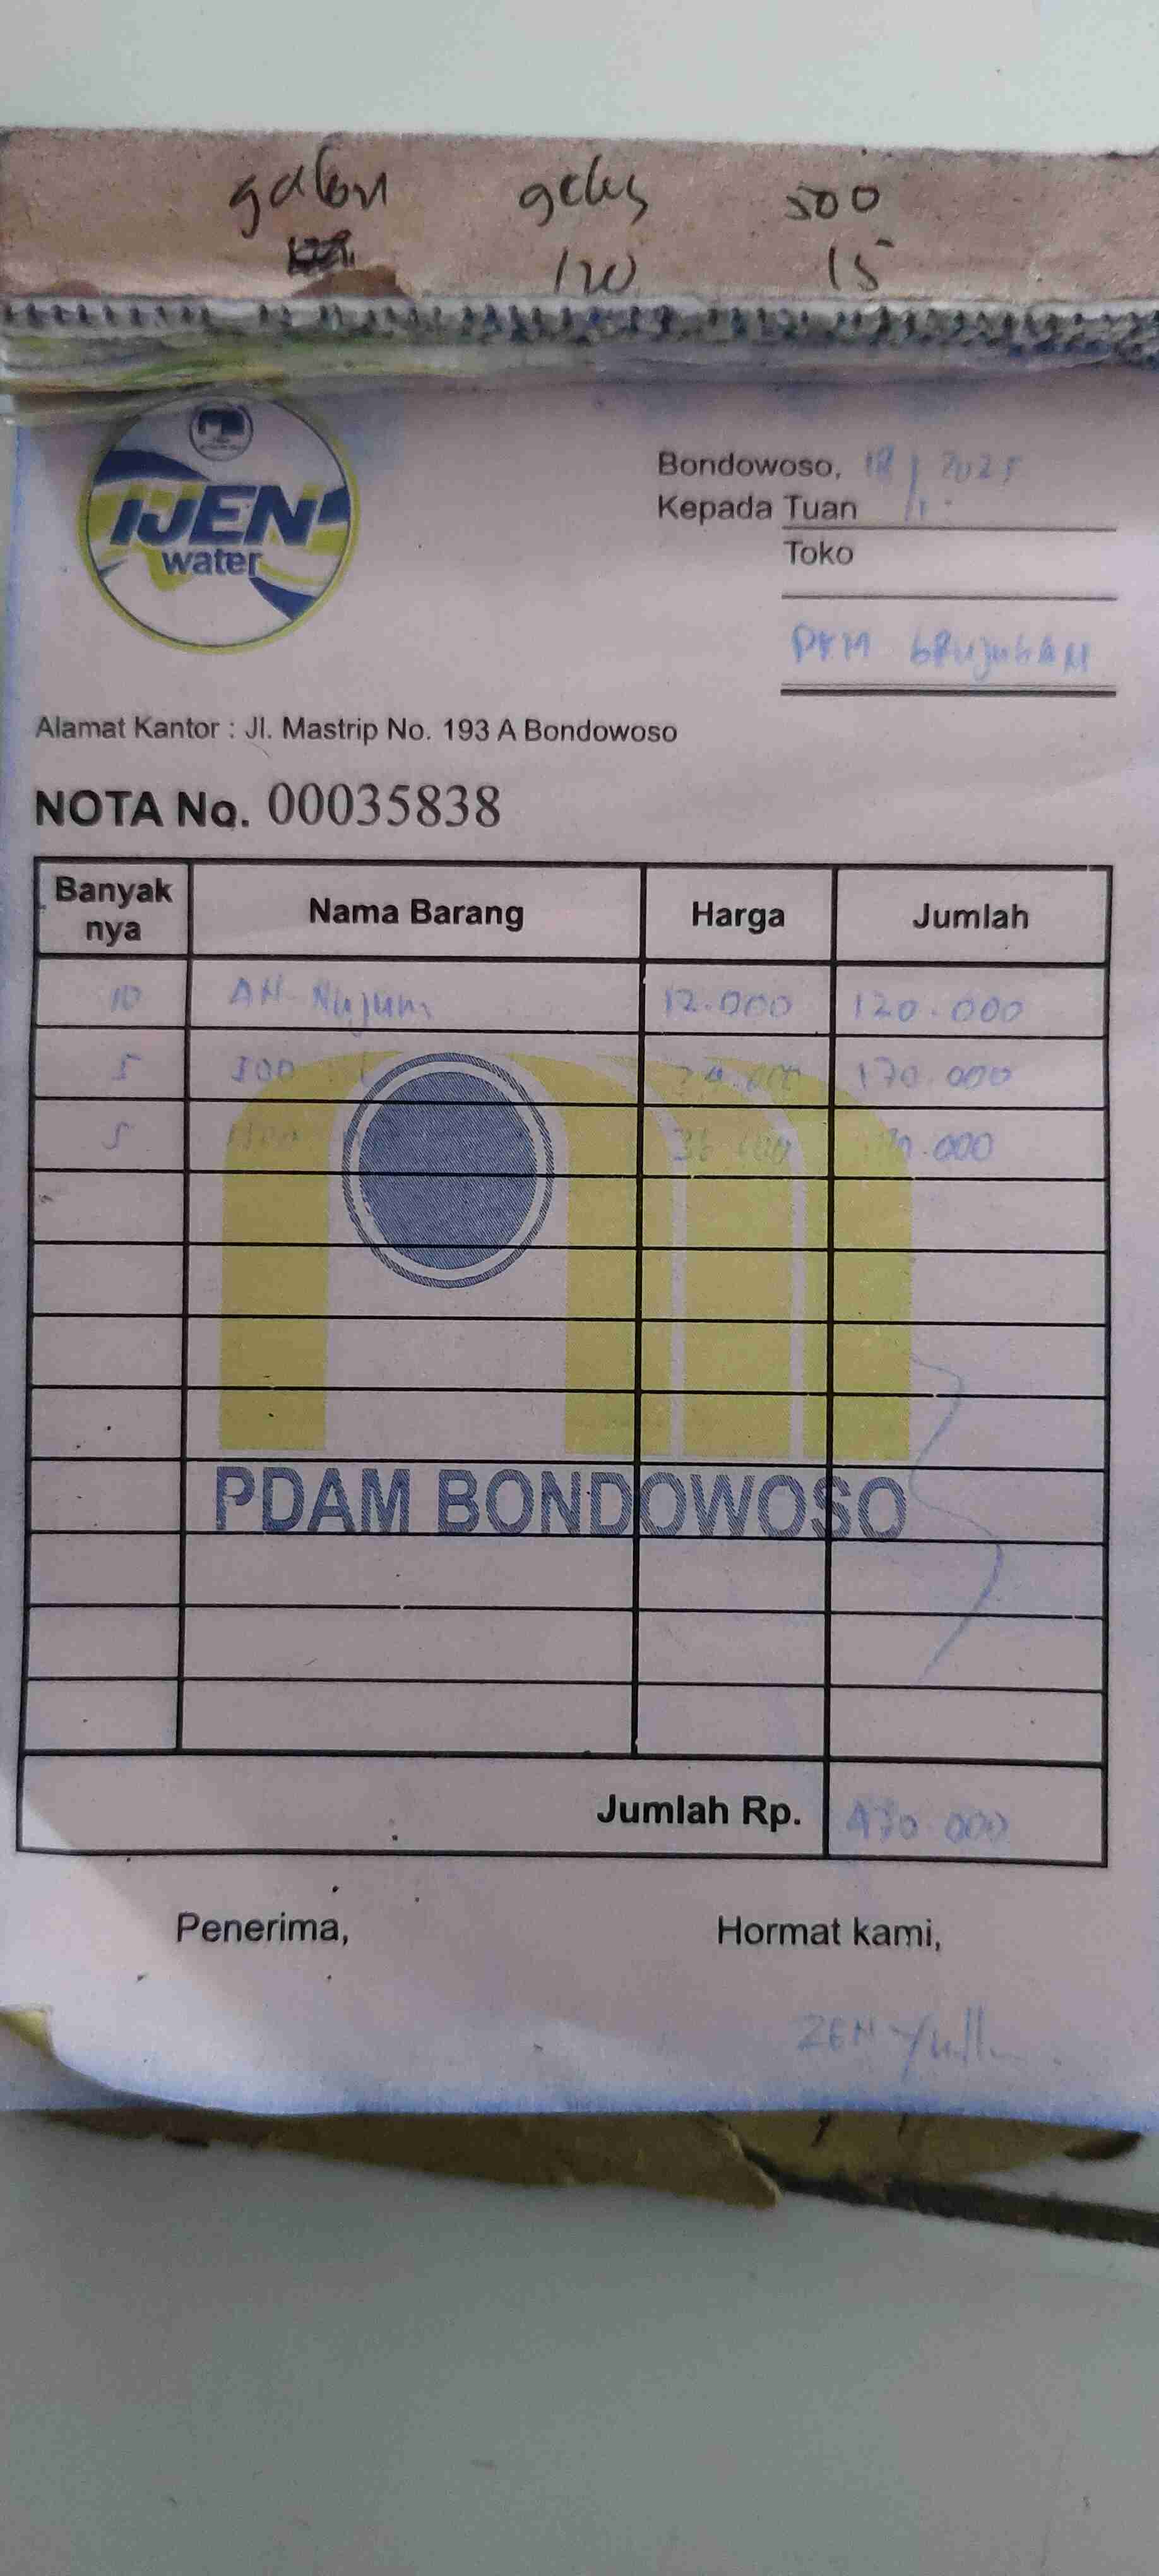 galon gelas 500
120 15
IJEN
water
Bondowoso, 18/1 2025
Kepada Tuan
Toko
PKM GRUJUGAN
Alamat Kantor : Jl. Mastrip No. 193 A Bondowoso
NOTA No. 00035838
Banyak nya Nama Barang Harga Jumlah
10 AN-Nujum 12.000 120.000
5 500 34.000 170.000
5 1500 36.000 .000
PDAM BONDOWOSO
Jumlah Rp. 470.000
Penerima, Hormat kami,
ZEN